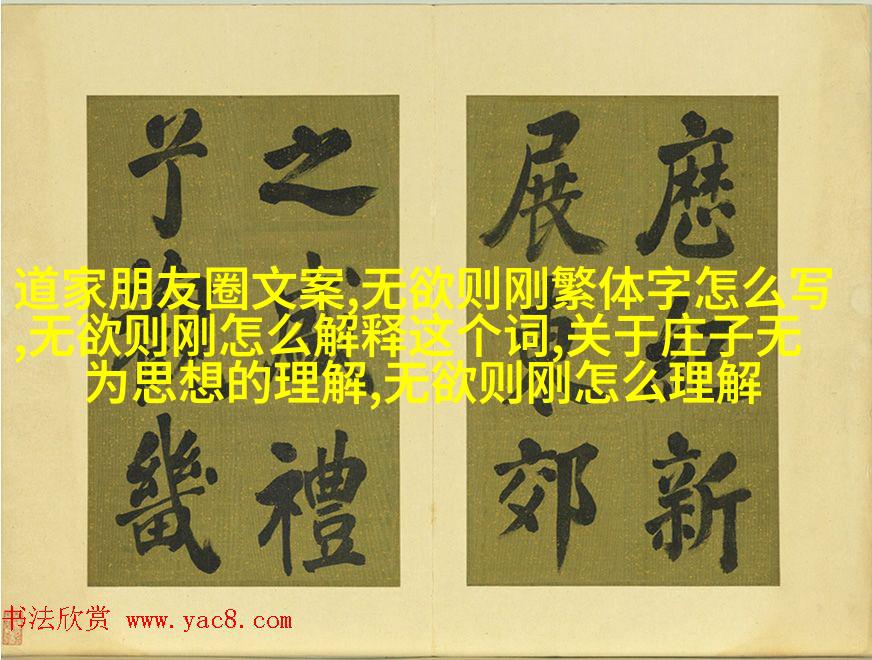 道家朋友圈文案,无欲则刚繁体字怎么写
,无欲则刚怎么解释这个词,关于庄子无
为思想的理解,无欲则刚怎么理解
新
展東郊
之盛禮
物幾
书法欣赏 www.yac8.com